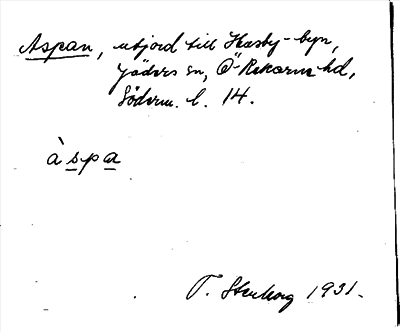 Aspan, utjord till Husby-byn,
Jäders sn, Ö-Rekarne hd,
Söderm. l. 14.
àspa
T. Stenborg 1931.